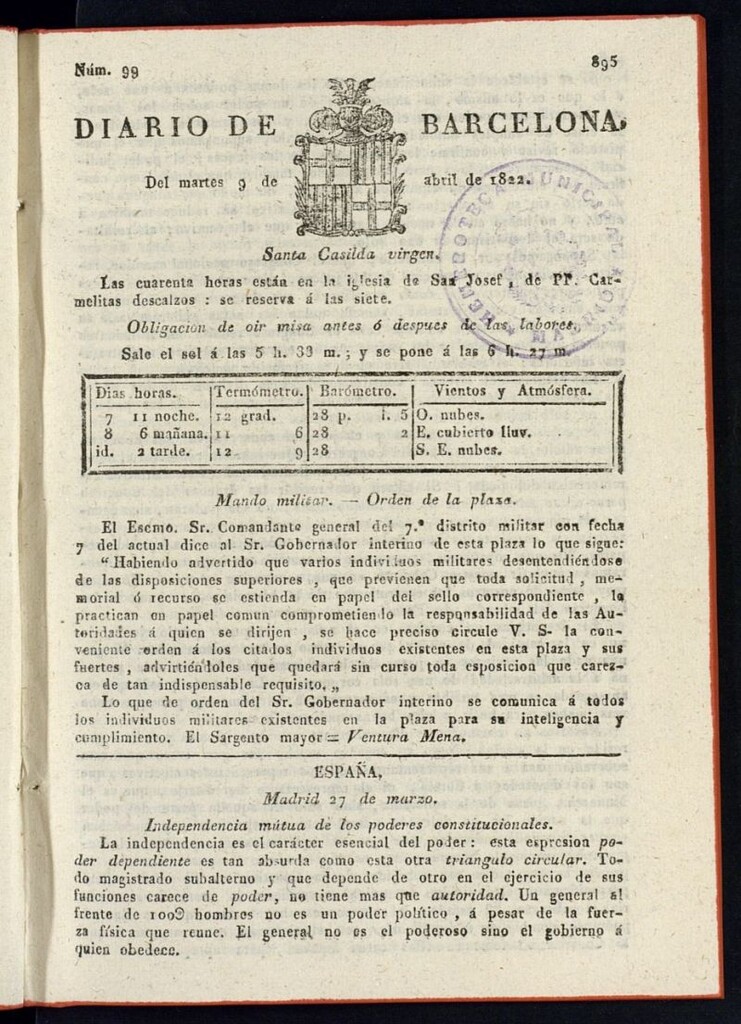 Núm. 99
895
DIARIO DE BARCELONA,
Del martes 9 de abril de 1822.
HEMEROTECA MUNICIPAL * MADRID *
Santa Casilda virgen.
Las cuarenta horas están en la iglesia de San Josef, de PP. Car-
melitas descalzos : se reserva á las siete.
Obligacion de oir misa antes ó despues de las labores.
Sale el sol á las 5 h. 33 m. ; y se pone á las 6 h. 27 m.
Dias horas. Termómetro. Barómetro. Vientos y Atmósfera.
7 11 noche. 12 grad. 28 p. l. 5 O. nubes.
8 6 mañana. 11 6 28 2 E. cubierto lluv.
id. 2 tarde. 12 9 28 S. E. nubes.
Mando militar. — Orden de la plaza.
El Escmo. Sr. Comandante general del 7.º distrito militar con fecha
7 del actual dice al Sr. Gobernador interino de esta plaza lo que sigue:
“Habiendo advertido que varios individuos militares desentendiéndose
de las disposiciones superiores , que previenen que toda solicitud , me-
morial ó recurso se estienda en papel del sello correspondiente , lo
practican en papel comun comprometiendo la responsabilidad de las Au-
toridades á quien se dirijen , se hace preciso circule V. S- la con-
veniente orden á los citados individuos existentes en esta plaza y sus
fuertes , advirtiéndoles que quedará sin curso toda esposicion que carez-
ca de tan indispensable requisito.„
Lo que de orden del Sr. Gobernador interino se comunica á todos
los individuos militares existentes en la plaza para su inteligencia y
cumplimiento. El Sargento mayor = Ventura Mena.
ESPAÑA.
Madrid 27 de marzo.
Independencia mútua de los poderes constitucionales.
La independencia es el carácter esencial del poder : esta espresion po-
der dependiente es tan absurda como esta otra triangulo circular. To-
do magistrado subalterno y que depende de otro en el ejercicio de sus
funciones carece de poder, no tiene mas que autoridad. Un general al
frente de 100 hombres no es un poder político , á pesar de la fuer-
za física que reune. El general no es el poderoso sino el gobierno á
quien obedece.